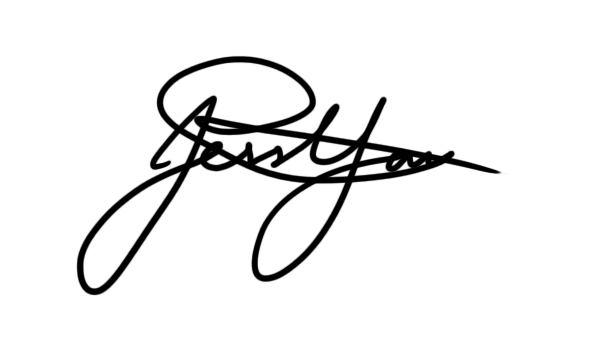 Jess Yau